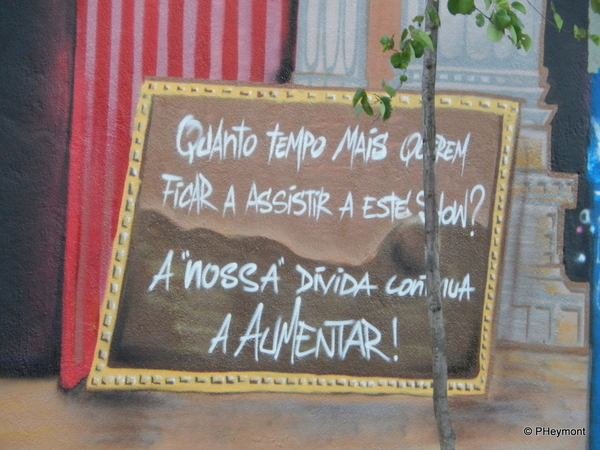 Quanto tempo mais querem
ficar a assistir a este show?
A "nossa" dívida continua
a aumentar!
© PHeymont